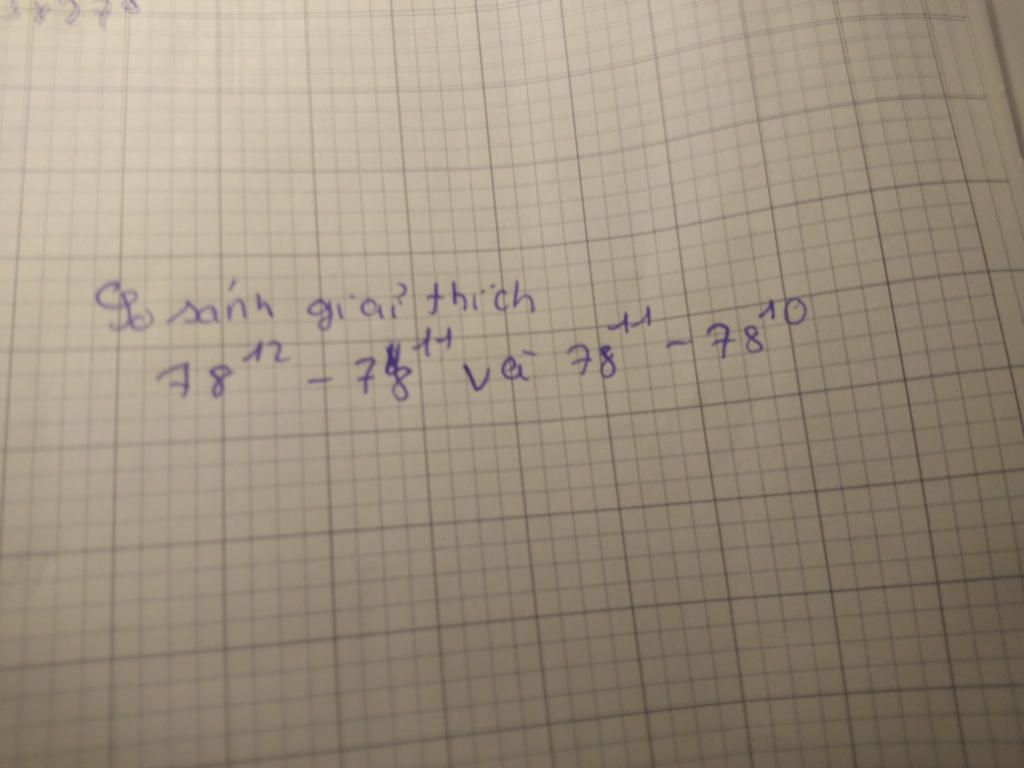 So sánh giải thích
78¹² - 78¹¹ và 78¹¹ - 78¹⁰